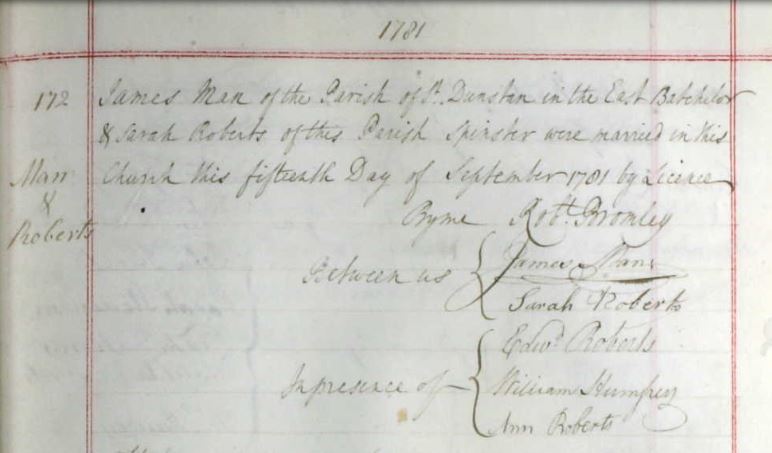 1781
172 James Man of the Parish of St. Dunstan in the East Batchelor
& Sarah Roberts of this Parish Spinster were married in this
Church this fifteenth Day of September 1781 by Licence
Man
&
Roberts
By me Robt. Bromley
Between us { James Man
Sarah Roberts
In presence of { Edwd. Roberts
William Humfrey
Ann Roberts